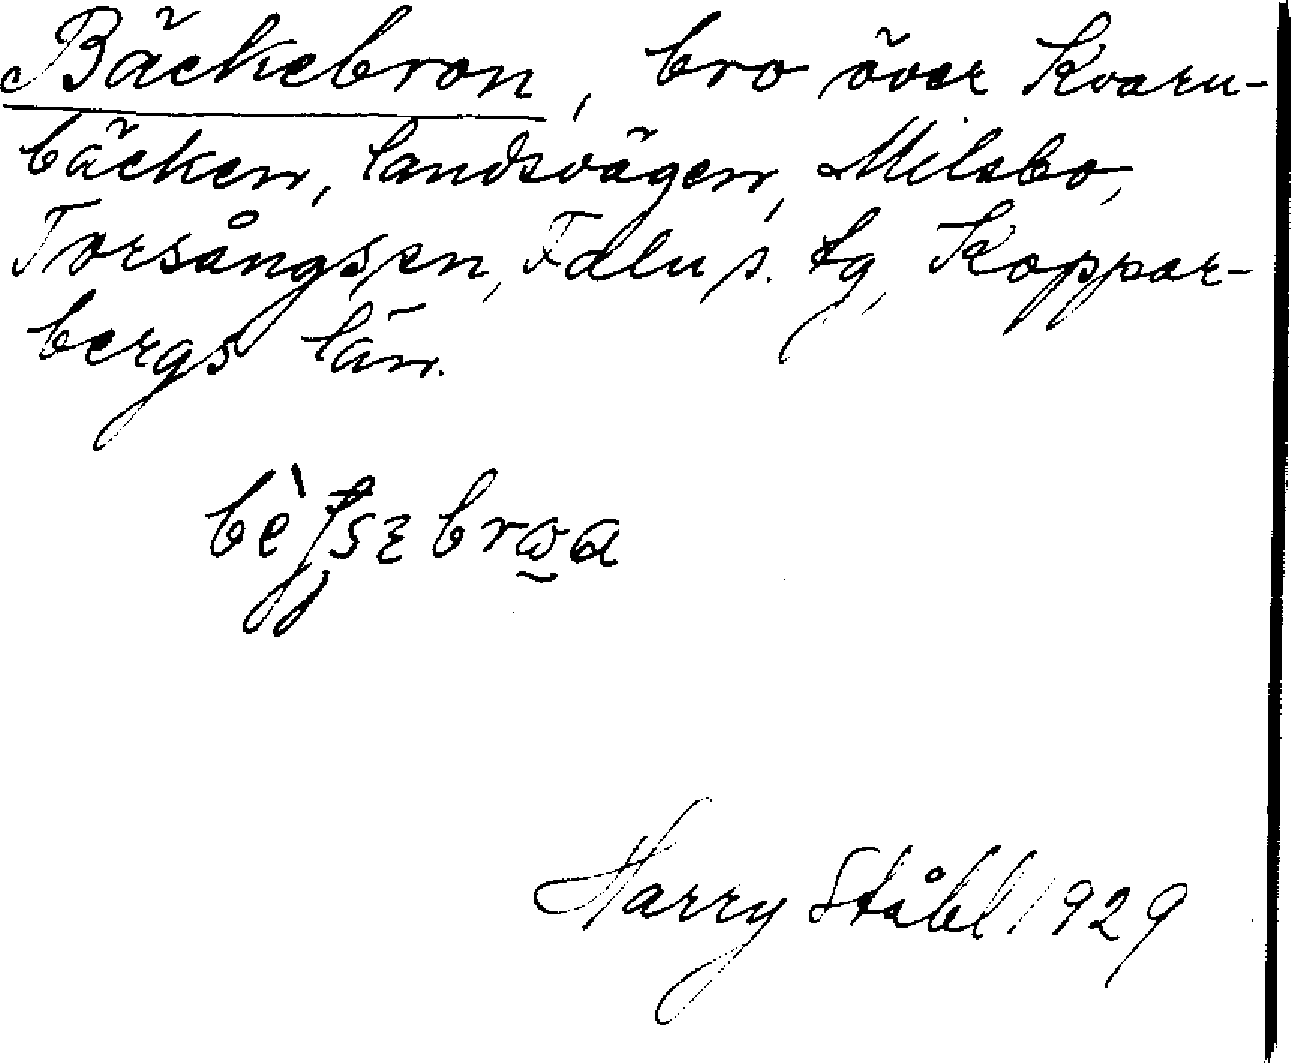 Bäckebron, bro över Kvarn-
bäcken, landsvägen, Milsbo,
Torsångs sn, Falu s. tg, Koppar-
bergs län.
Harry Ståhl 1929